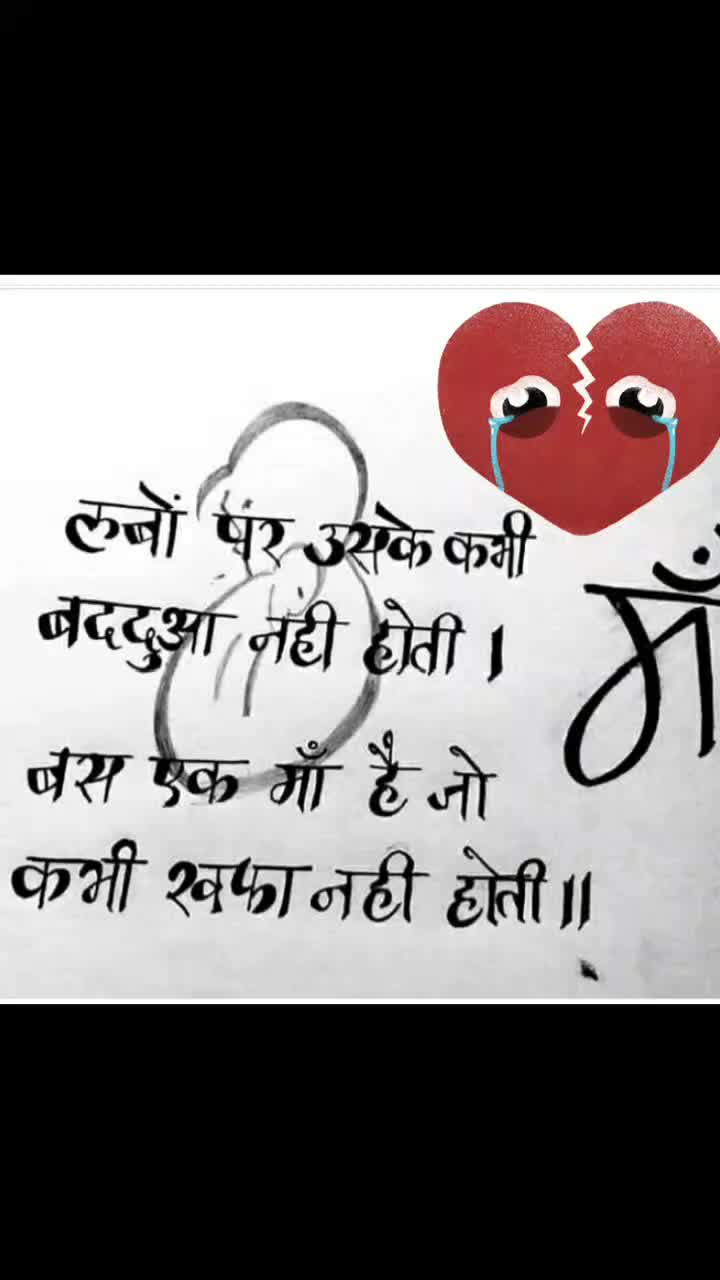 लबों पर उसके कभी
बददुआ नही होती ।
बस एक माँ है जो
कभी खफा नही होती ॥
माँ